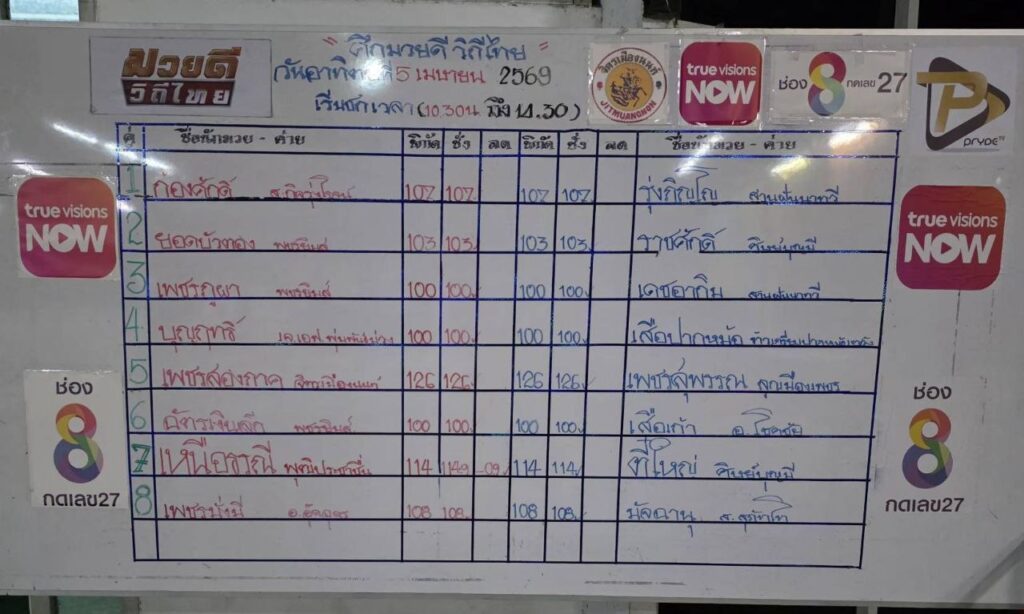 มวยดี
วิถีไทย
" ศึกมวยดี วิถีไทย "
วันอาทิตย์ที่ 5 เมษายน 2569
เริ่มชกเวลา (10.30น. ถึง 12.30)
จิตรเมืองนนท์
JITMUANGNON
true visions
NOW
ช่อง 8 กดเลข 27
PRYDE TV
คู่ ชื่อนักมวย - ค่าย พิกัด ชั่ง ลด พิกัด ชั่ง ลด ชื่อนักมวย - ค่าย
1 ก้องศักดิ์ 107 107 107 107 รุ่งภิญโญ
2 ยอดบัวทอง เพชรยินดี 103 103 103 103 ราชศักดิ์ ศิษย์บุญมี
3 เพชรภูผา เพชรยินดี 100 100 100 100 เดชอากิม
4 บุญฤทธิ์ 100 100 100 100 เสือปากหมัด
5 เพชรสองภาค จิตรเมืองนนท์ 126 126 126 126 เพชรสุพรรณ
6 ฉัตรเงิน เพชรยินดี 100 100 100 100 เสือเก่า
7 เหนือธรณี 114 1149 -09 114 114 ตี๋ใหญ่ ศิษย์บุญมี
8 เพชรมั่งมี 108 108 108 108
true visions
NOW
true visions
NOW
ช่อง
8
กดเลข27
ช่อง
8
กดเลข27